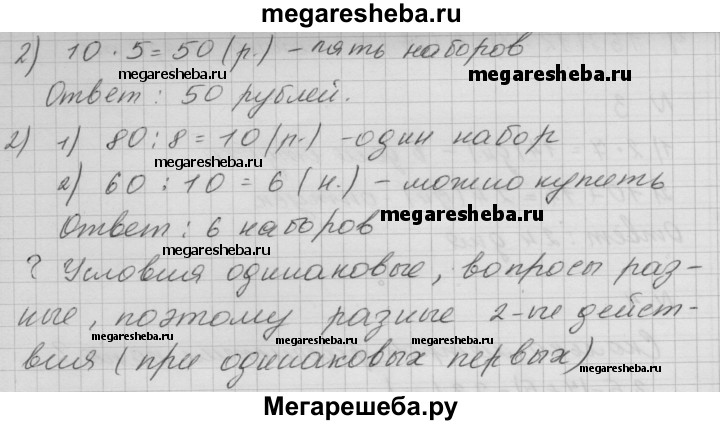 megaresheba.ru
2) 10 · 5 = 50 (р.) – пять наборов
megaresheba.ru
megaresheba.ru
Ответ: 50 рублей.
megaresheba.ru
2) 1) 80 : 8 = 10 (р.) – один набор
megaresheba.ru
2) 60 : 10 = 6 (н.) – можно купить
megaresheba.ru
Ответ: 6 наборов
megaresheba.ru
? Условия одинаковые, вопросы раз-
ные, поэтому разные 2-ые дейст-
megaresheba.ru
megaresheba.ru
megaresheba.ru
вия (при одинаковых первых)
Мегарешеба.ру